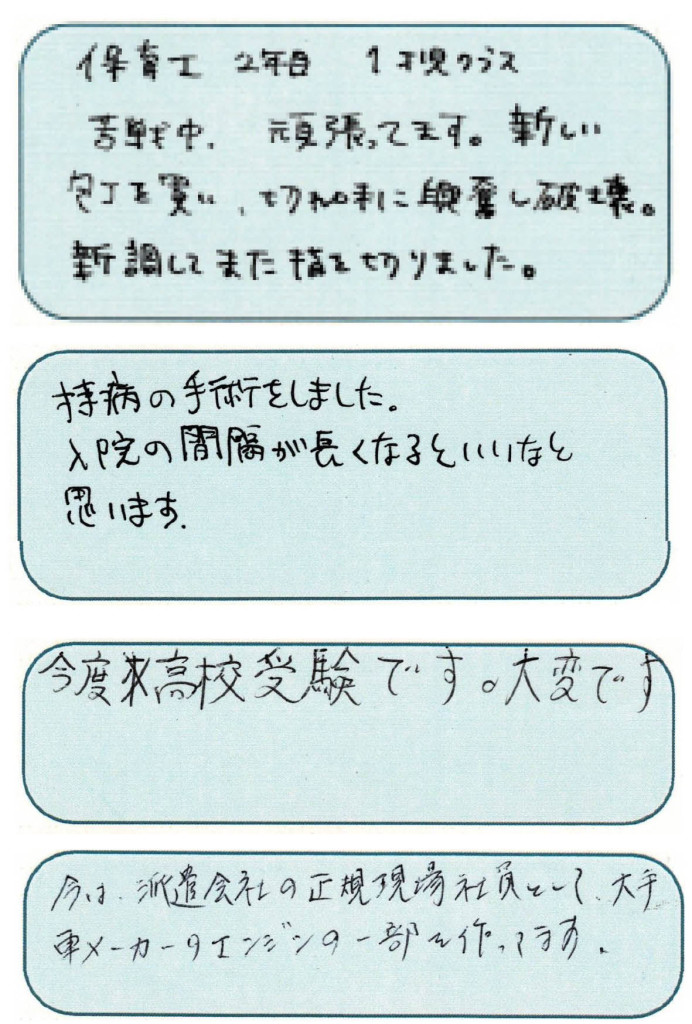 保育士 2年目 1才児クラス
苦戦中. 頑張ってます。新しい
包丁を買い、切れ味に興奮し破壊。
新調してまた指を切りました。
持病の手術をしました。
入院の間隔が長くなるといいなと
思います.
今度は高校受験です。大変です
今は、派遣会社の正規現場社員として、大手
車メーカーのエンジンの一部を作ってます。